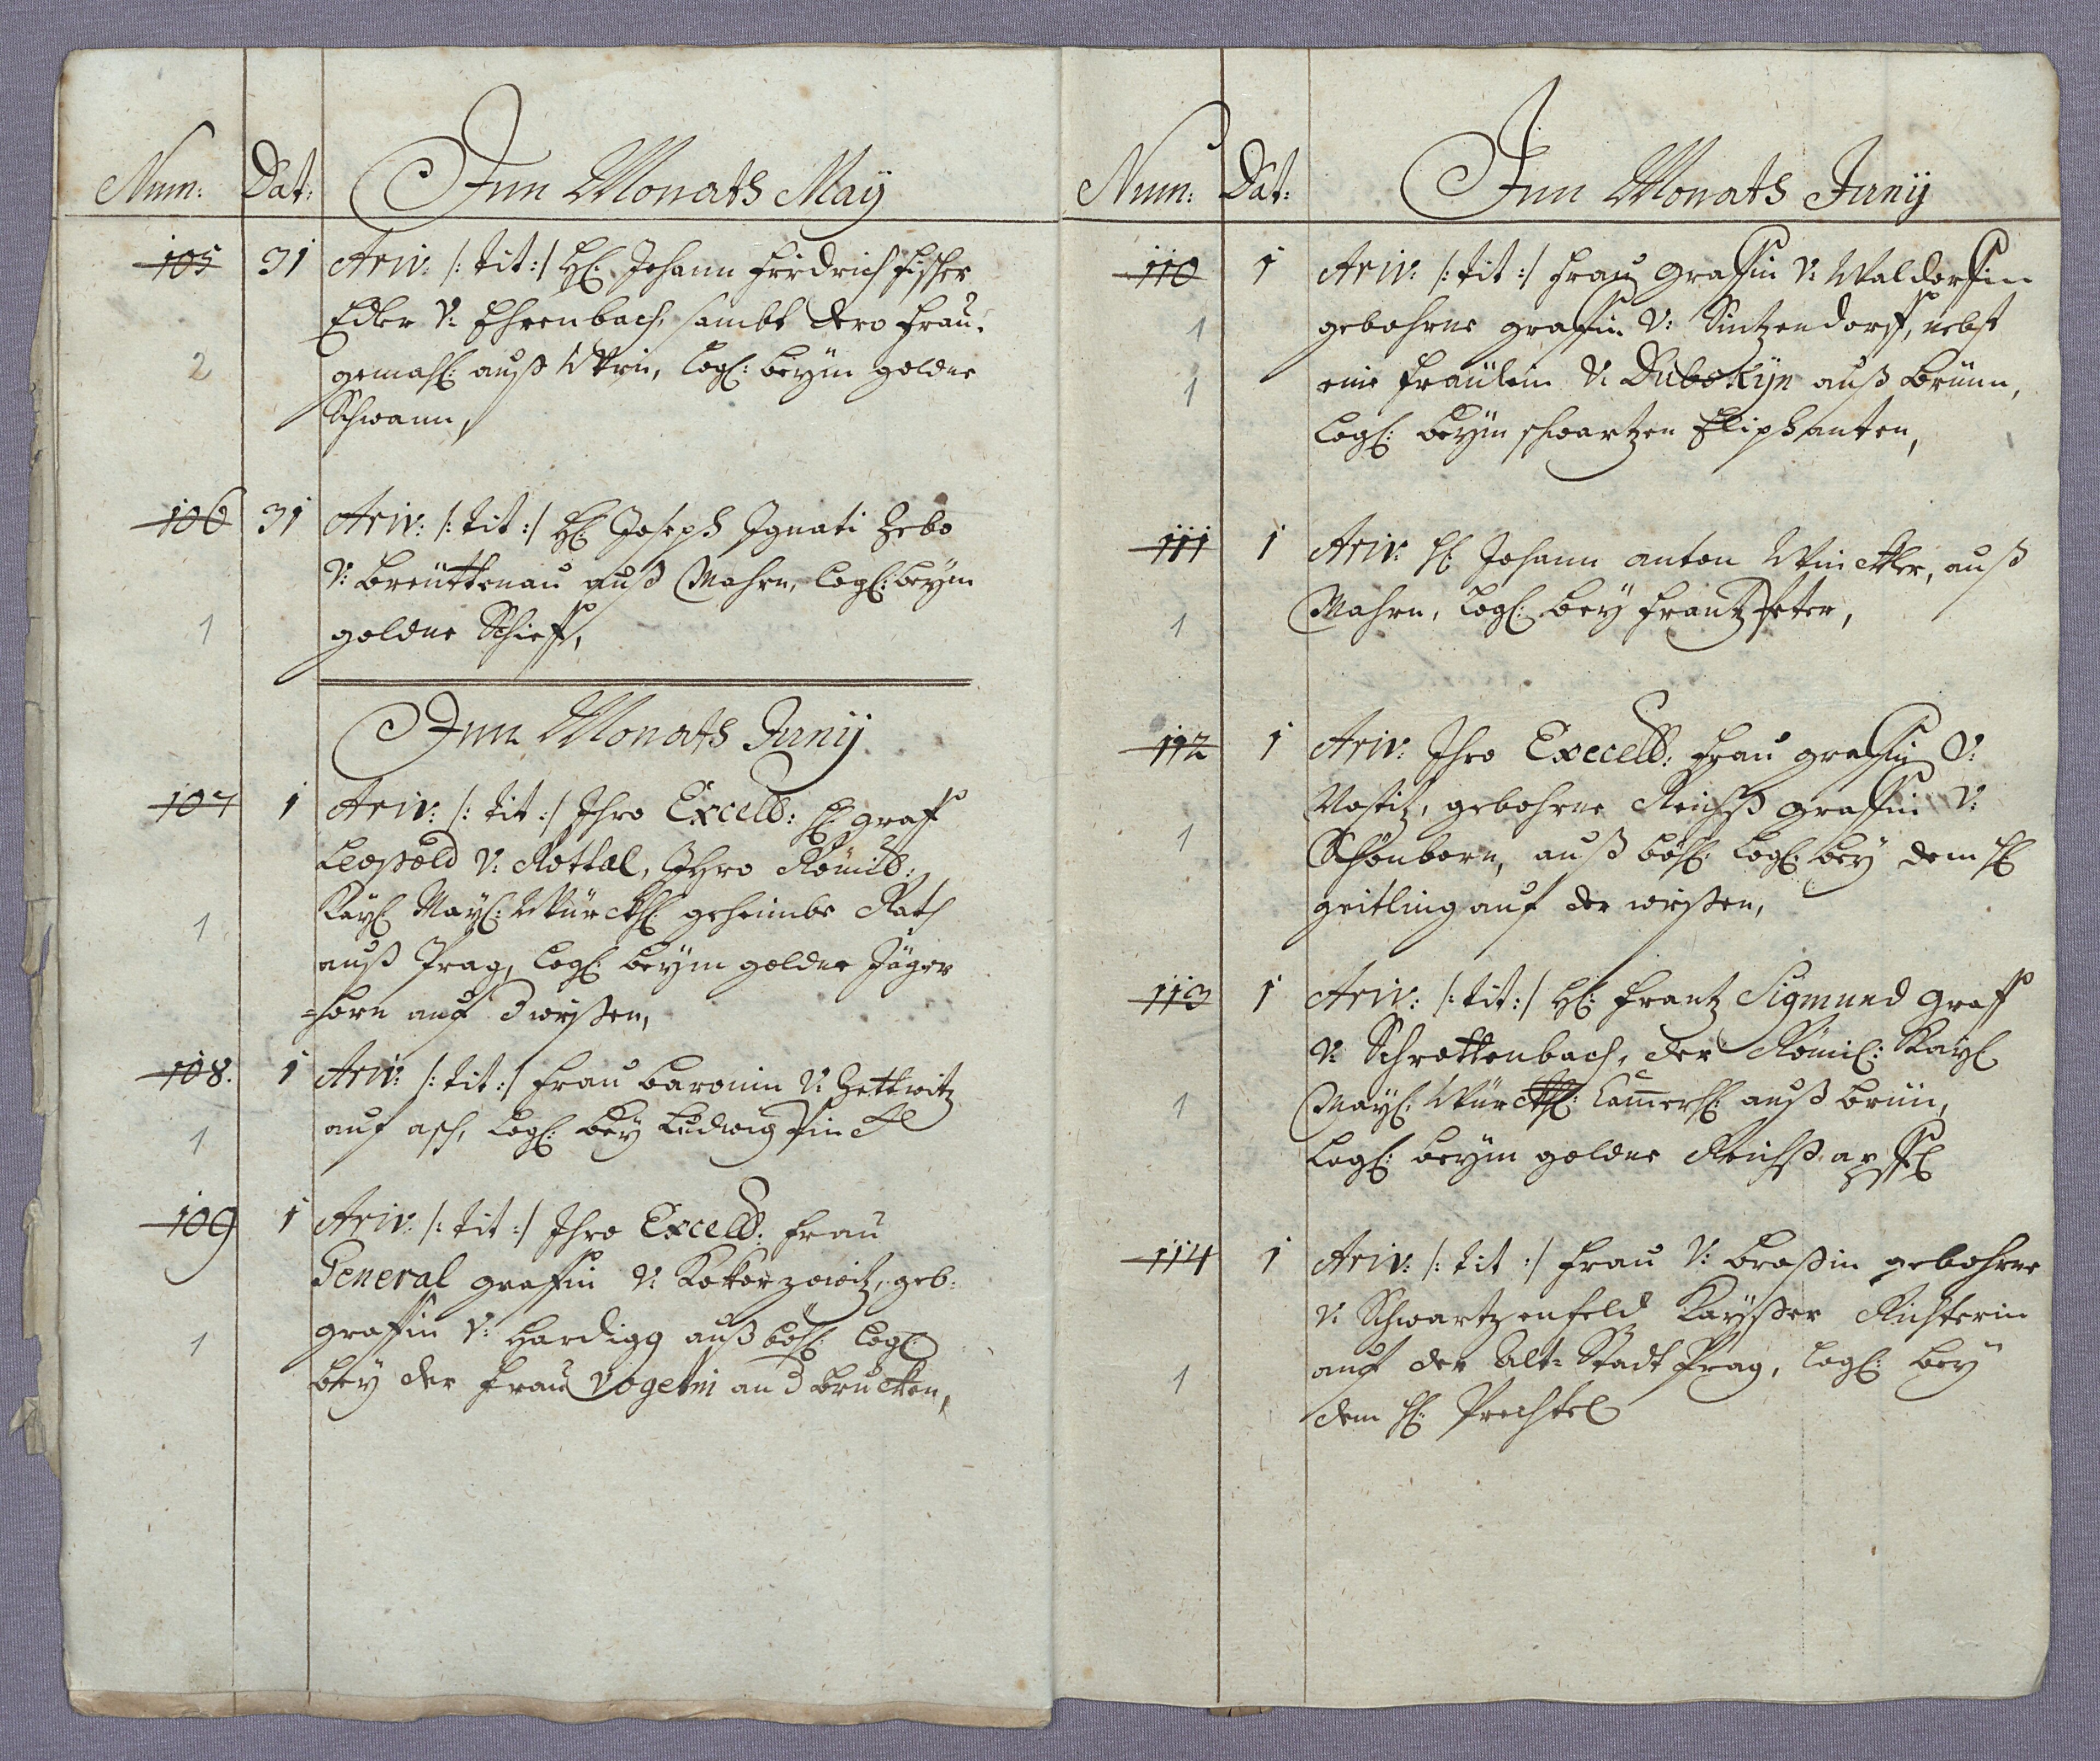 Num: Dat: Inn Monaths May
105 31 Ariv: /: tit :/ H: Johann Fridrich Fischer
Edler v: Ehrenbach, sambt dero Frau.
2 gemahl: auß Wien, Log: beym goldne
Schwann,
106 31 Ariv: /: tit :/ H: Joseph Ignati Zebo
v: Breüttenau auß Mahrn, Log: beym
1 goldne Schieff,
Inn Monaths Junij
107 1 Ariv: /: tit :/ Ihro Excell: H: Graff
Leopold v: Rottal, Ihro Römisl:
Kayl: Mayl: Würckl: geheimbe Rath
1 auß Prag, Log: beym goldne Jäger
=horn auf d wießen,
108. 1 Ariv: /: tit :/ Frau Baronin v: Zettwitz
1 auf asch, Log: bey Ludwig Finck
109 1 Ariv: /: tit :/ Ihro Excell: Frau
General graffin v: Kokorzowitz, geb:
1 graffin v: Hardigg auß böh: Log:
bey der Frau Vogelin an d brucken,
Num: Dat: Inn Monaths Junij
110 1 Ariv: /: tit :/ Frau graffin v: Waldorffin
1 gebohrne graffin v: Sintzendorff, nebst
1 eine Fraülein v: Dubskÿn auß Brünn,
Log: beym schwartzen Eliphanten,
111 1 Ariv: H: Johann anton Winckler, auß
1 Mahrn, Log: bey Frantz Peter,
112 1 Ariv: Ihro Execell: Frau graffin v:
Nostitz, gebohrne Reichß graffin v:
1 Schönborn, auß böh: Log: bey dem H:
geitling auf der wießen,
113 1 Ariv: /: tit :/ H: Frantz Sigmund Graff
v: Schrottenbach, der Römil: Kayl:
1 Mayl: Würckl: Camerh: auß Brün,
Log: beym goldne Reichß apffel
114 1 Ariv: /: tit :/ Frau v: Broßin gebohrne
v: Schwartzenfeld Kaysser Richterin
1 auf der Alt=Stadt Prag, Log: bey
dem H: Prechtel